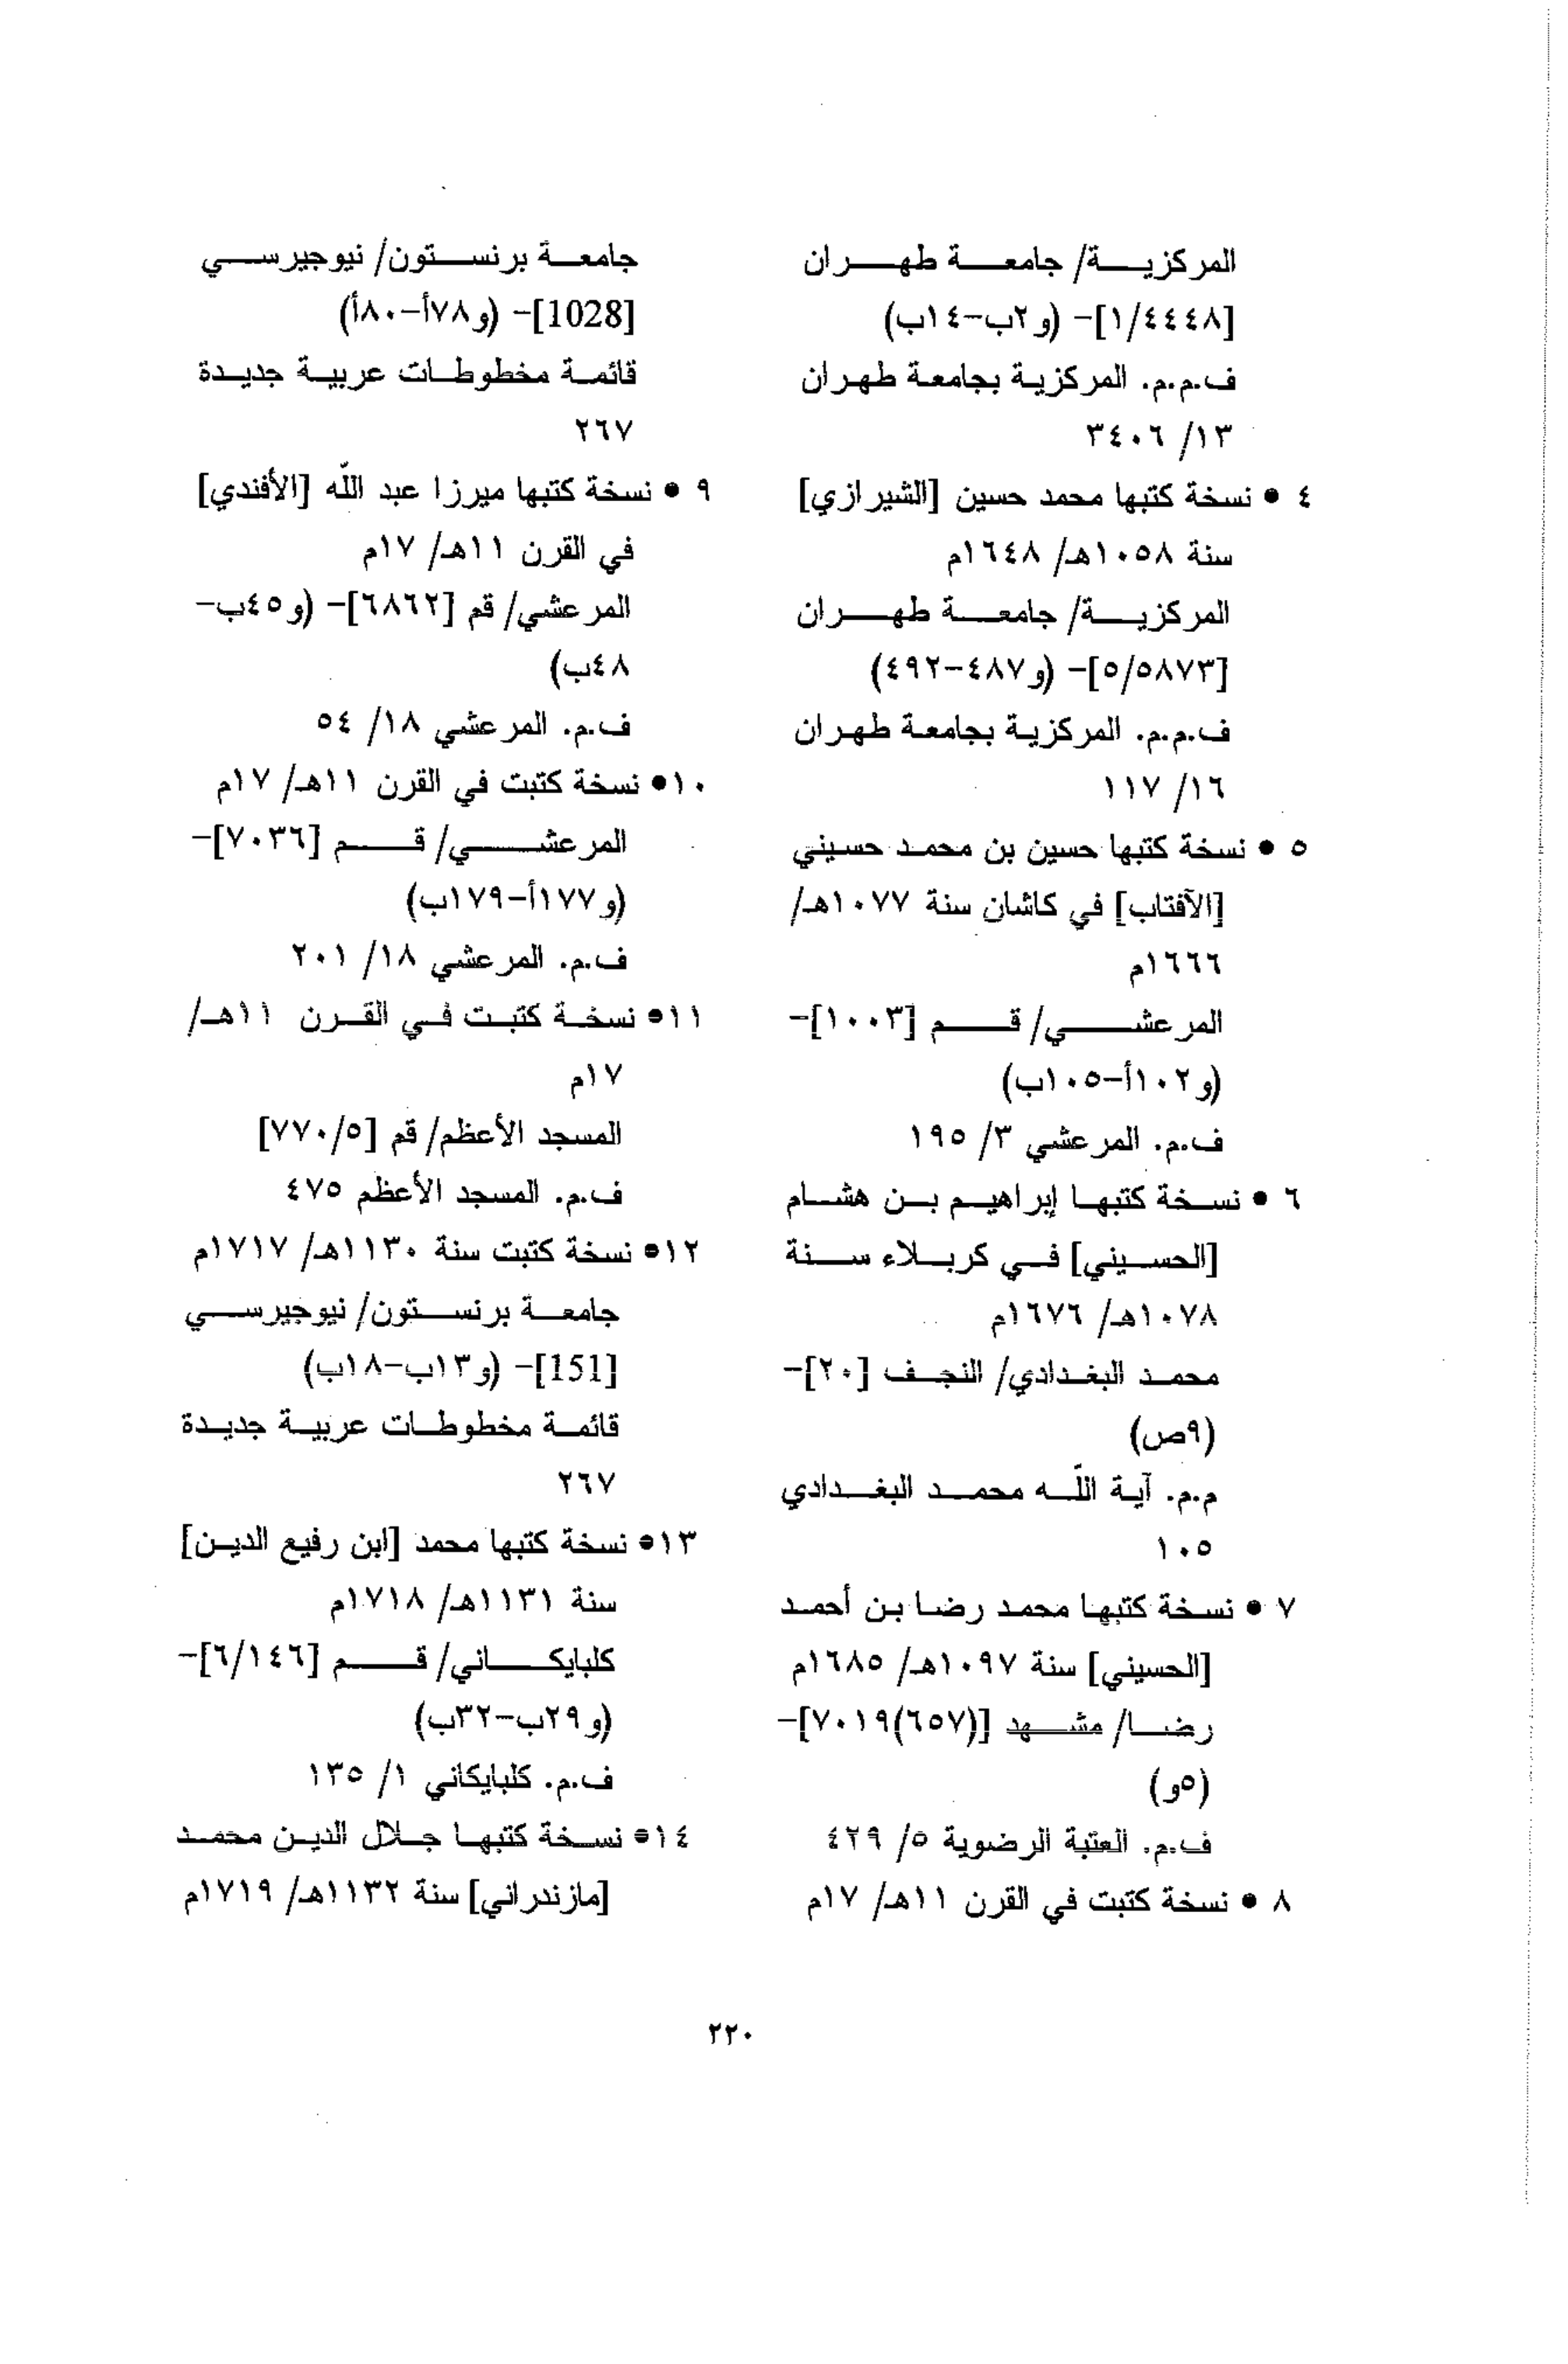 المركزية/ جامعة طهران
[١/٤٤٤٨]- (و٢ب-١٤ب)
ف.م.م. المركزية بجامعة طهران
١٣/ ٣٤٠٦
٤ • نسخة كتبها محمد حسين [الشيرازي]
سنة ١٠٥٨هـ/ ١٦٤٨م
المركزية/ جامعة طهران
[٥/٥٨٧٣]- (و٤٨٧-٤٩٢)
ف.م.م. المركزية بجامعة طهران
١٦/ ١١٧
٥ • نسخة كتبها حسين بن محمد حسيني
[الآفتاب] في كاشان سنة ١٠٧٧هـ/
١٦٦٦م
المرعشي/ قم [١٠٠٣]-
(و١٠٢أ-١٠٥ب)
ف.م. المرعشي ٣/ ١٩٥
٦ • نسخة كتبها إبراهيم بن هشام
[الحسيني] في كربلاء سنة
١٠٧٨هـ/ ١٦٧٦م
محمد البغدادي/ النجف [٢٠]-
(٩ص)
م.م. آية اللّه محمد البغدادي
١٠٥
٧ • نسخة كتبها محمد رضا بن أحمد
[الحسيني] سنة ١٠٩٧هـ/ ١٦٨٥م
رضا/ مشهد [(٦٥٧)٧٠١٩]-
(٥و)
ف.م. العتبة الرضوية ٥/ ٤٢٩
٨ • نسخة كتبت في القرن ١١هـ/ ١٧م
جامعة برنستون/ نيوجيرسي
[1028]- (و٧٨أ-٨٠أ)
قائمة مخطوطات عربية جديدة
٢٦٧
٩ • نسخة كتبها ميرزا عبد اللّه [الأفندي]
في القرن ١١هـ/ ١٧م
المرعشي/ قم [٦٨٦٢]- (و٤٥ب-
٤٨ب)
ف.م. المرعشي ١٨/ ٥٤
١٠• نسخة كتبت في القرن ١١هـ/ ١٧م
المرعشي/ قم [٧٠٣٦]-
(و١٧٧أ-١٧٩ب)
ف.م. المرعشي ١٨/ ٢٠١
١١• نسخة كتبت في القرن ١١هـ/
١٧م
المسجد الأعظم/ قم [٧٧٠/٥]
ف.م. المسجد الأعظم ٤٧٥
١٢• نسخة كتبت سنة ١١٣٠هـ/ ١٧١٧م
جامعة برنستون/ نيوجيرسي
[151]- (و١٣ب-١٨ب)
قائمة مخطوطات عربية جديدة
٢٦٧
١٣• نسخة كتبها محمد [ابن رفيع الدين]
سنة ١١٣١هـ/ ١٧١٨م
كلبايكاني/ قم [٦/١٤٦]-
(و٢٩ب-٣٢ب)
ف.م. كلبايكاني ١/ ١٣٥
١٤• نسخة كتبها جلال الدين محمد
[مازندراني] سنة ١١٣٢هـ/ ١٧١٩م
٢٢٠